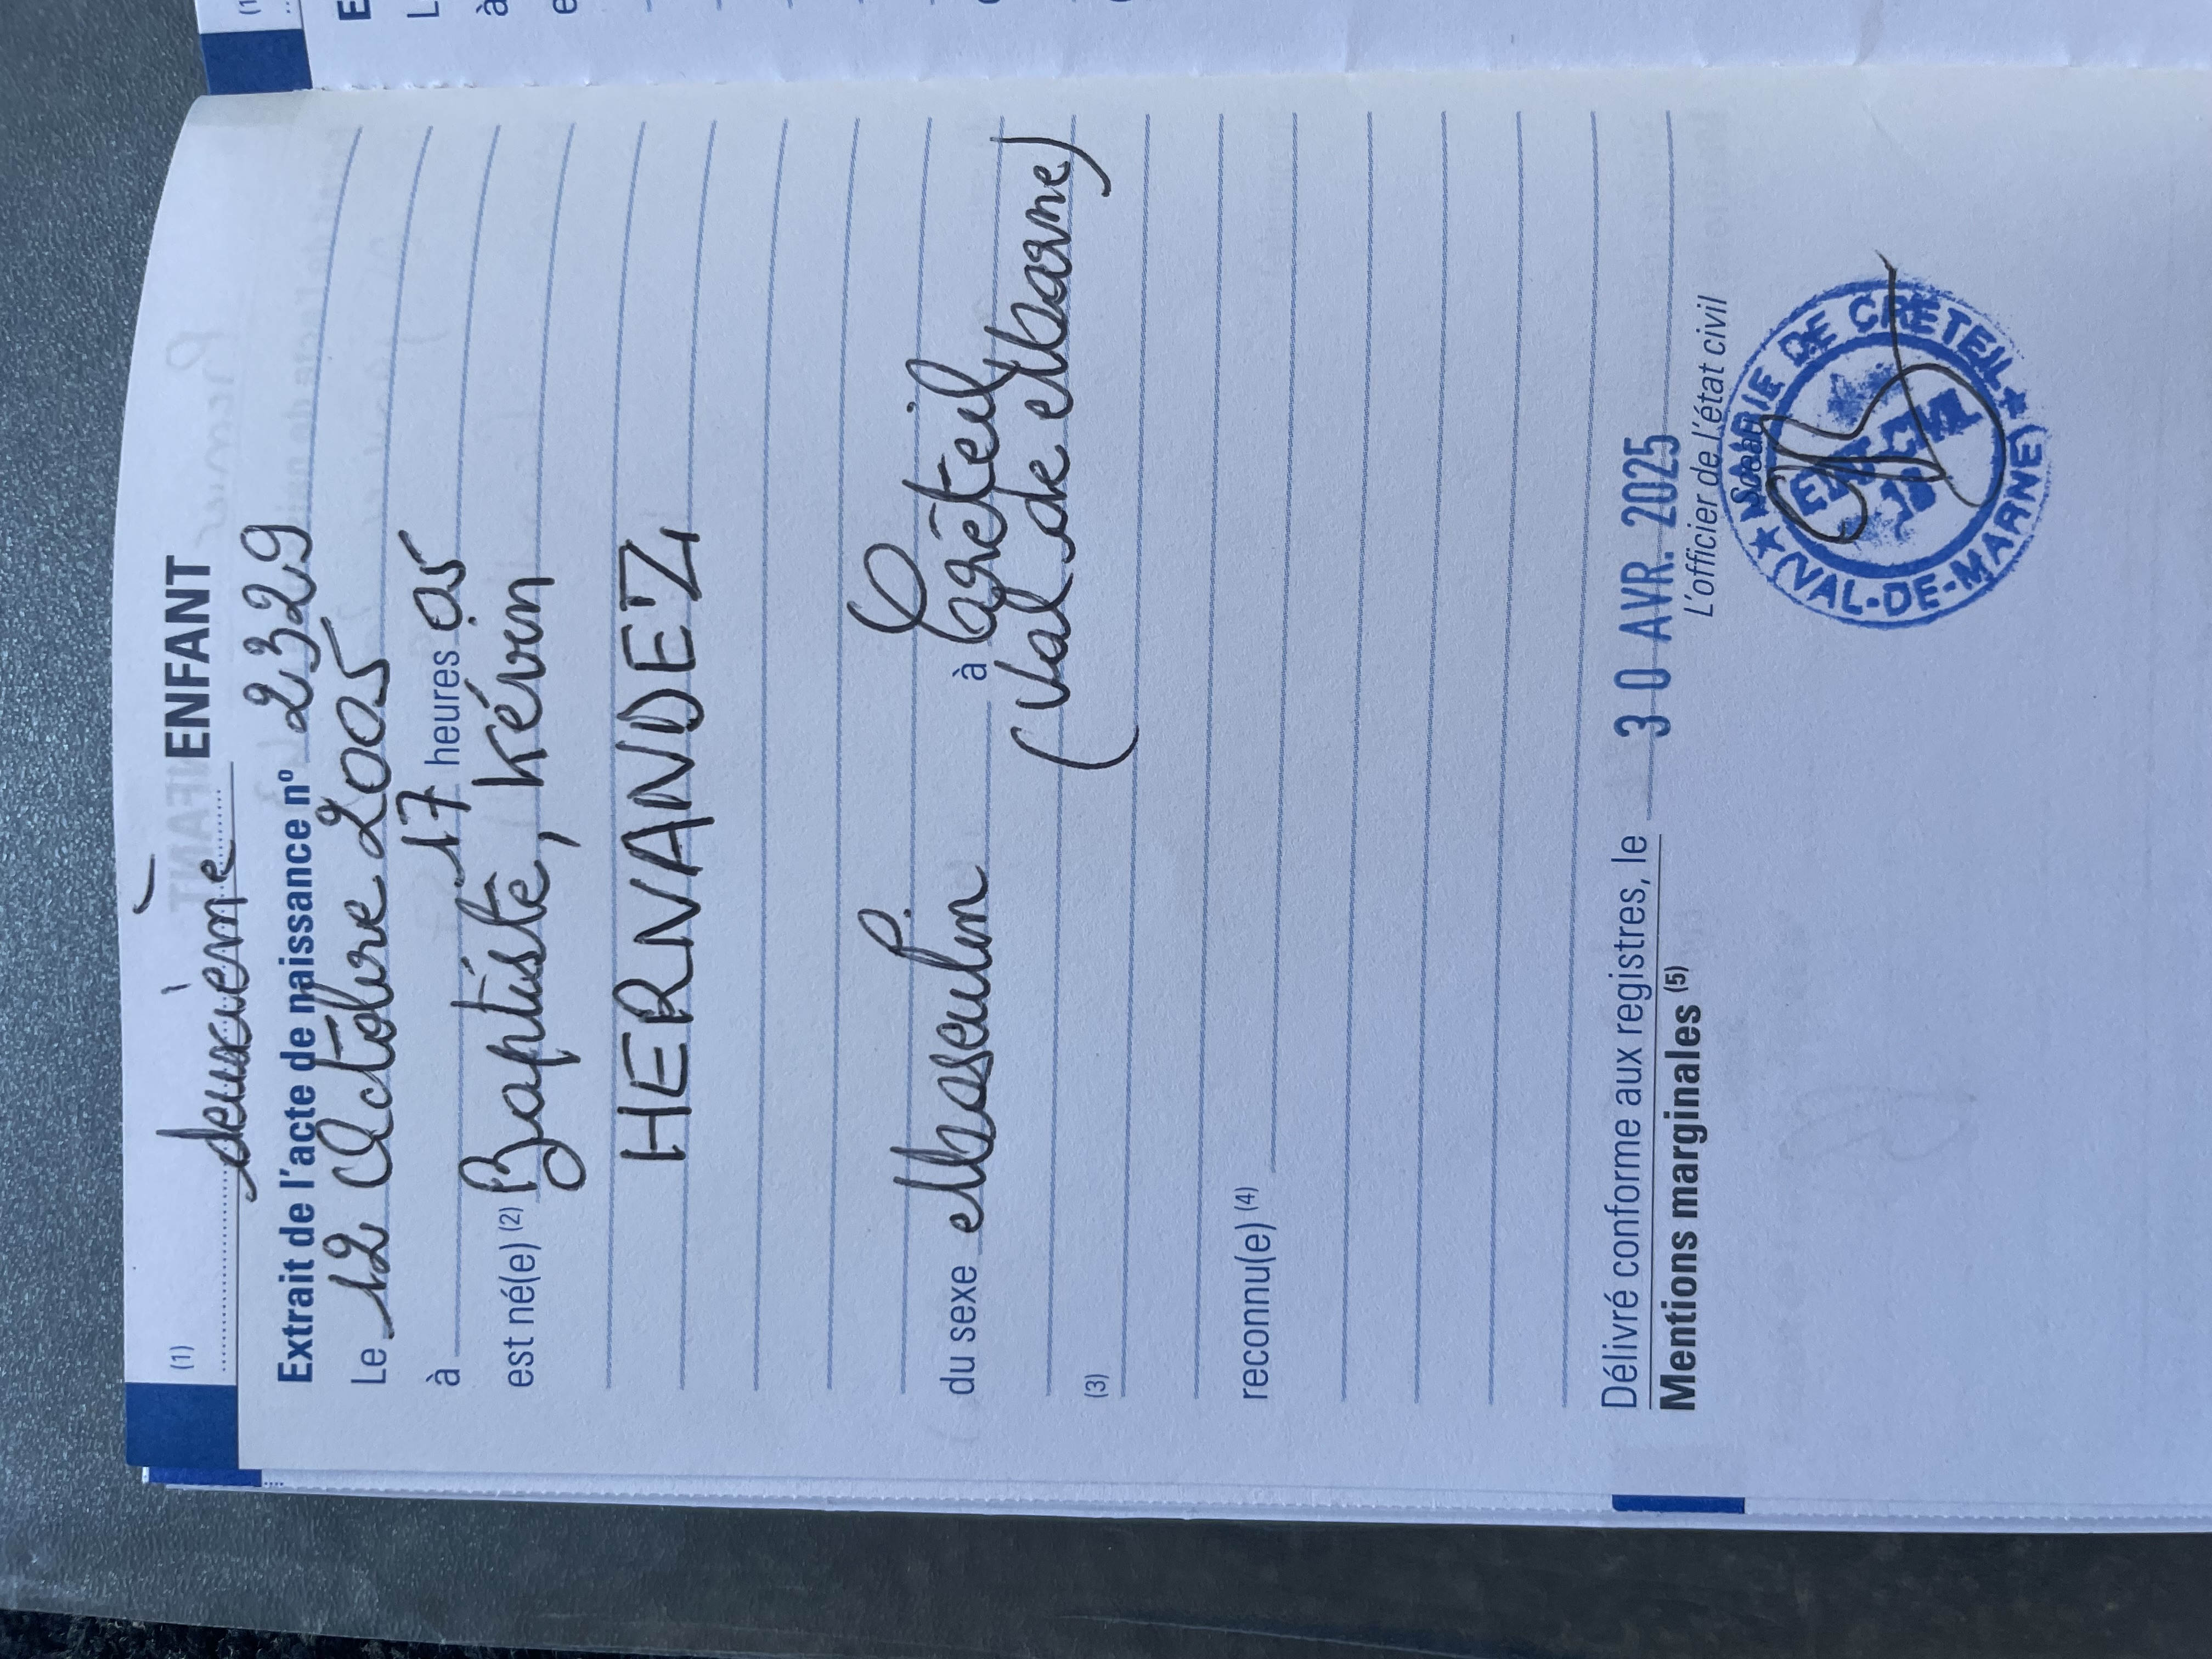 (1) deuxième ENFANT
Extrait de l'acte de naissance nº 2329
Le 12 Octobre 2005
à 17 heures 05
est né(e) (2) Baptiste, Kévin
HERNANDEZ
du sexe Masculin à Créteil
(Val de Marne)
(3)
reconnu(e) (4)
Délivré conforme aux registres, le 30 AVR. 2025
Mentions marginales (5)
L'officier de l'état civil
MAIRIE DE CRETEIL
ETAT CIVIL
(VAL-DE-MARNE)